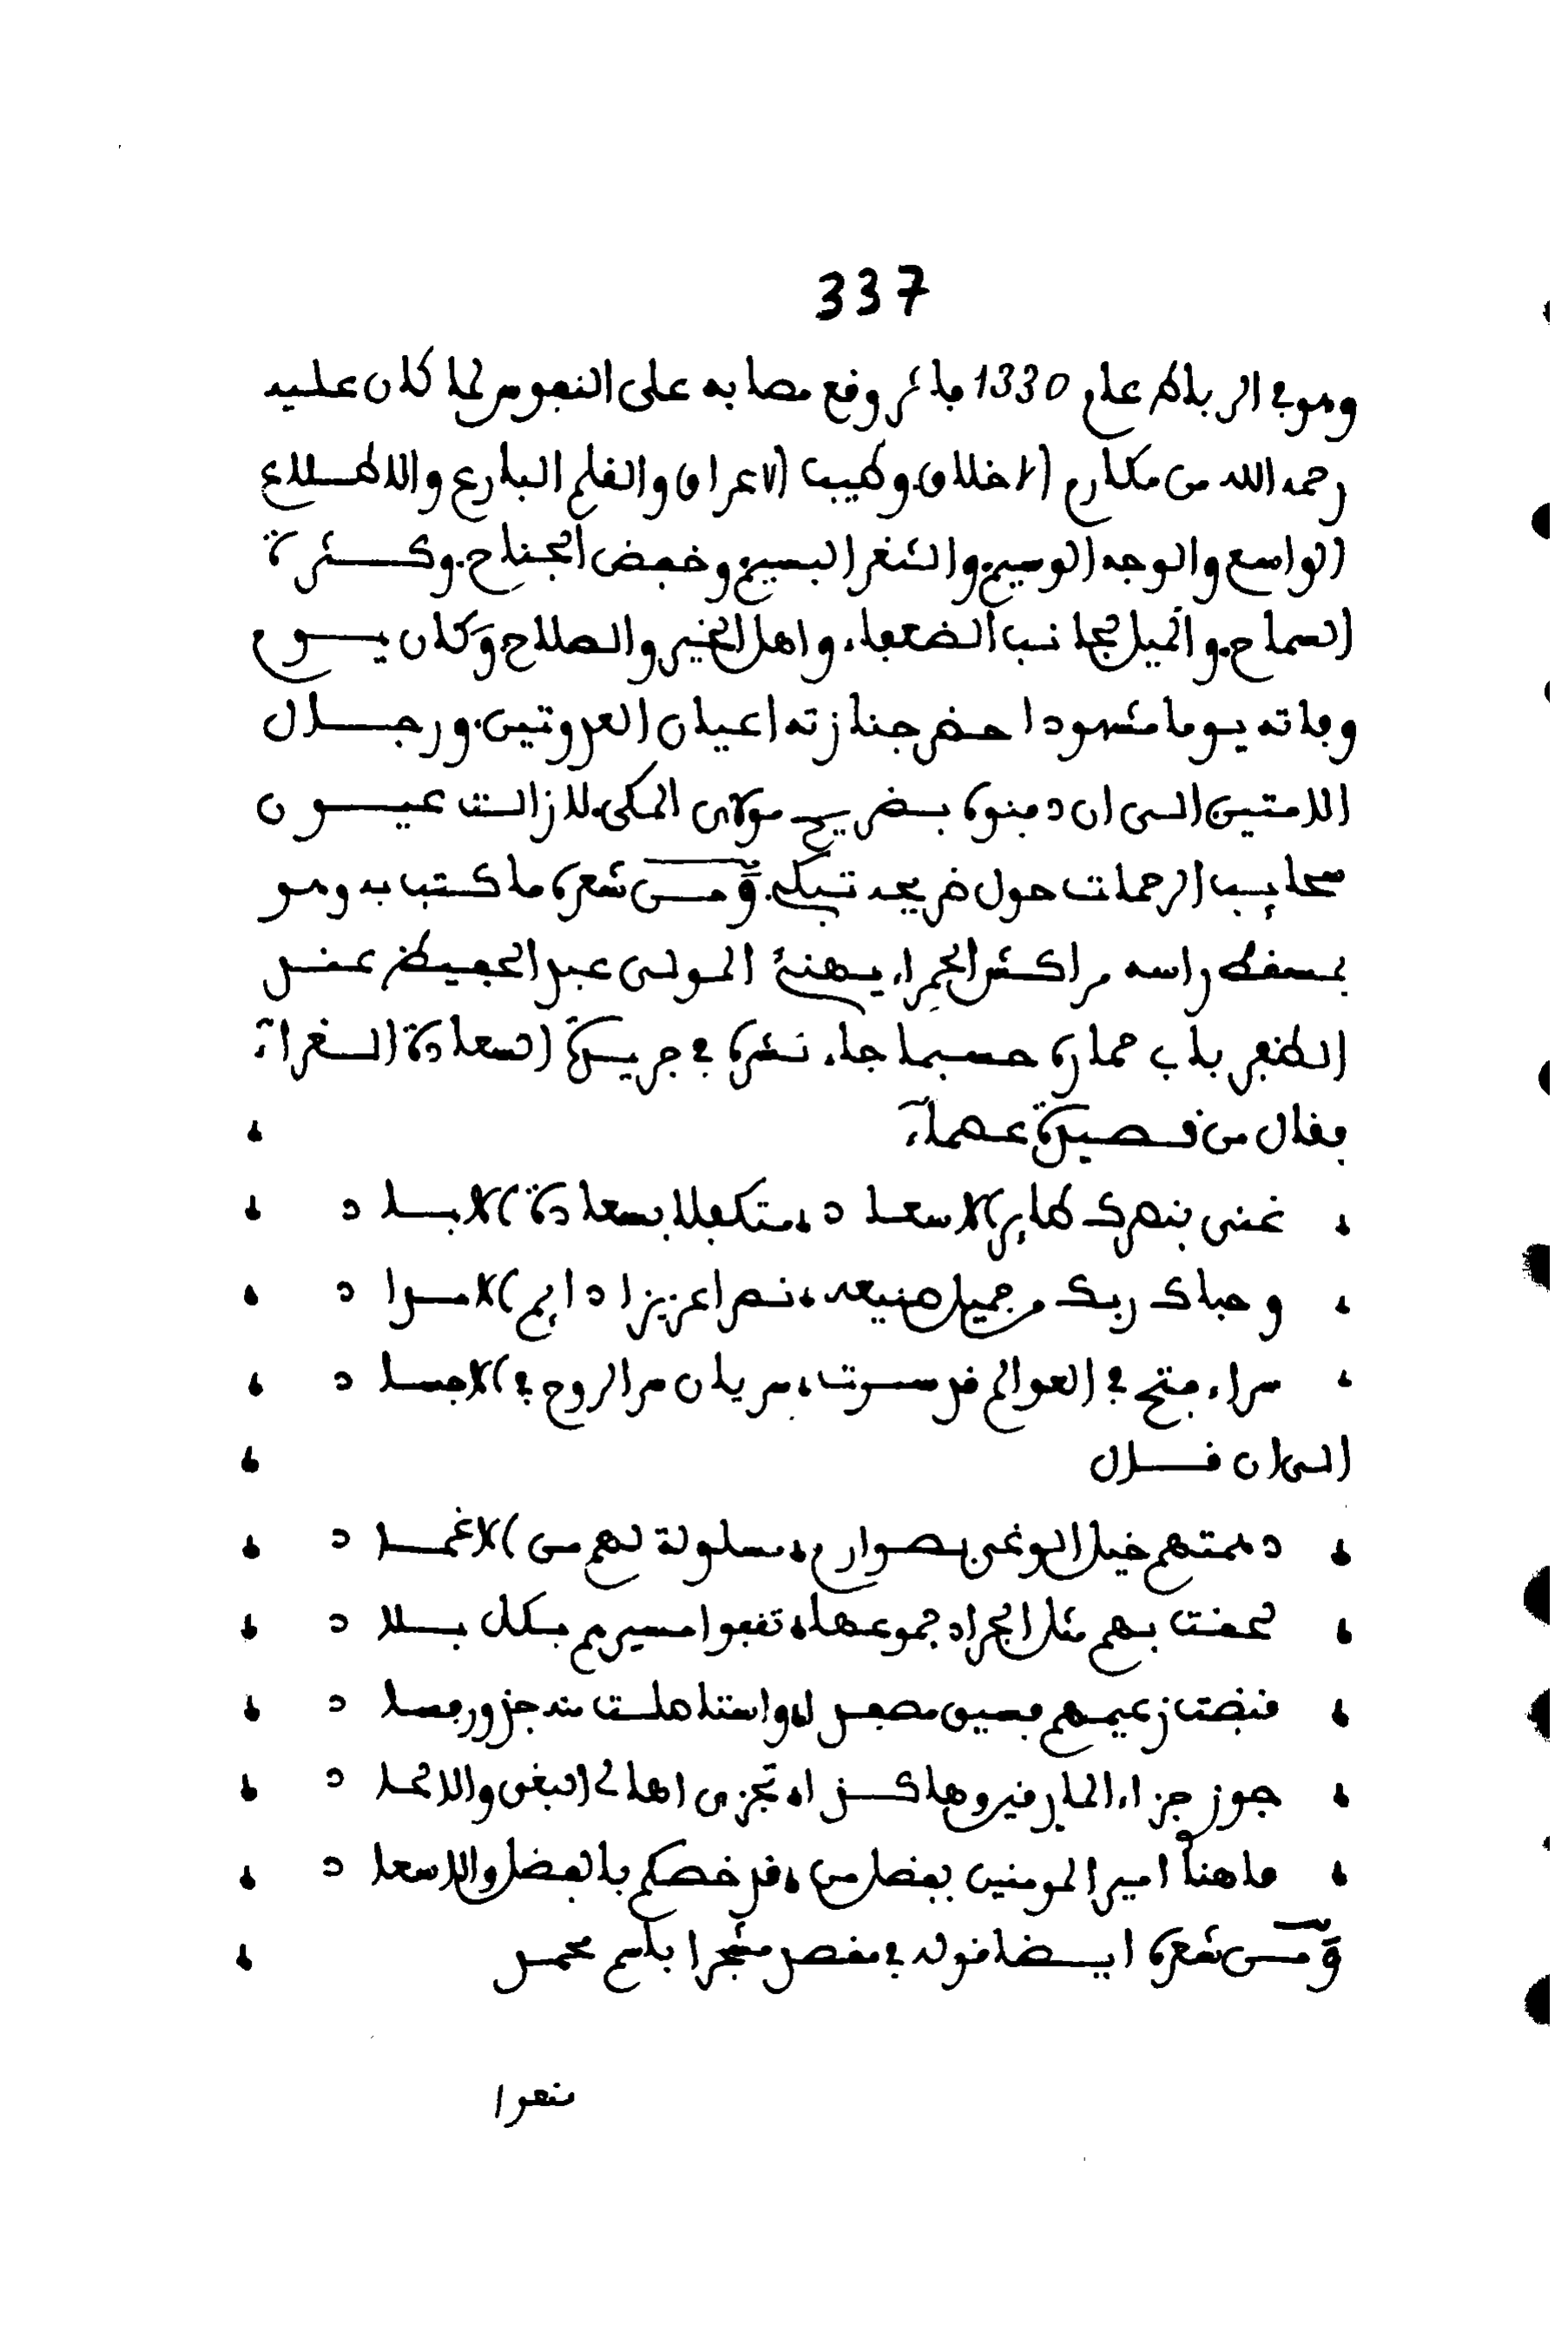 337
وهو في الرباط عام 1330 فاثر وقع مصابه على النفوس لما كان عليه
رحمه الله من مكارم الاخلاق وطيب الاعراق والقلم البارع والاطلاع
الواسع والوجه الوسيم والثغر البسيم وخفض الجناح. وكثرة
السماح. والميل لجانب الضعفاء واهل الخير والصلاح وكان يوم
وفاته يوما مشهودا حضر جنازته اعيان العدوتين. ورجال
الامتين الى ان دفنوه بضريح مولاى المكي. لازالت عيون
سحايب الرحمات حول ضريحه تبكي. ومن شعره ما كتب به وهو
بمسقط راسه مراكش الحمراء يهنئ المولى عبد الحفيظ عند
الظفر بابي حمارة حسبما جاء نشره في جريدة السعادة الغراء
فقال من قصيدة عصماء
غنى بنصرك طاير الاسعاد متكفلا بسعادة الاباد
وحباك ربك من جميل صنيعه نصرا عزيزا دايم الامداد
سراء فتح في العوالم قد سرت سريان سر الروح في الاجساد
الى ان قال
دهمتهم خيل الوغى بصوارم مسلولة لهم من الاغماد
لحقت بهم مثل الجراد جموعها تقفوا مسيرهم بكل بلاد
قبضت زعيمهم فسيق مصفدا واستاهلت منه جزور فساد
جوزي جزاء المارقين وهاكذا تجزى اهالي البغى والالحاد
فاهنأ امير المومنين بفضل من قد خصكم بالفضل والاسعاد
ومن شعره ايضا قوله في مقصد مشجرا باسم محمد